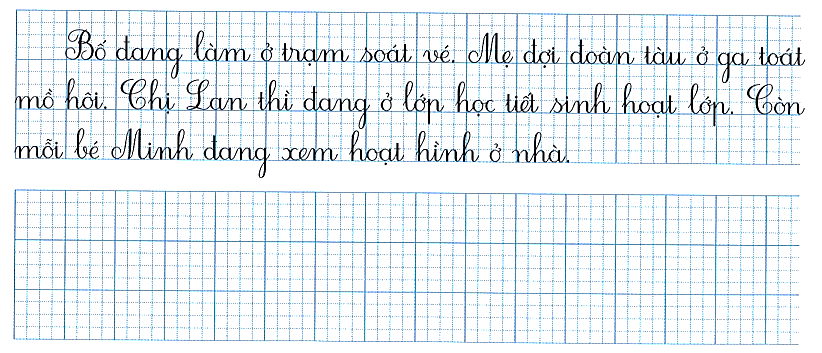 Bố đang làm ở trạm soát vé. Mẹ đợi đoàn tàu ở ga toát
mồ hôi. Chị Lan thì đang ở lớp học tiết sinh hoạt lớp. Còn
mỗi bé Minh đang xem hoạt hình ở nhà.